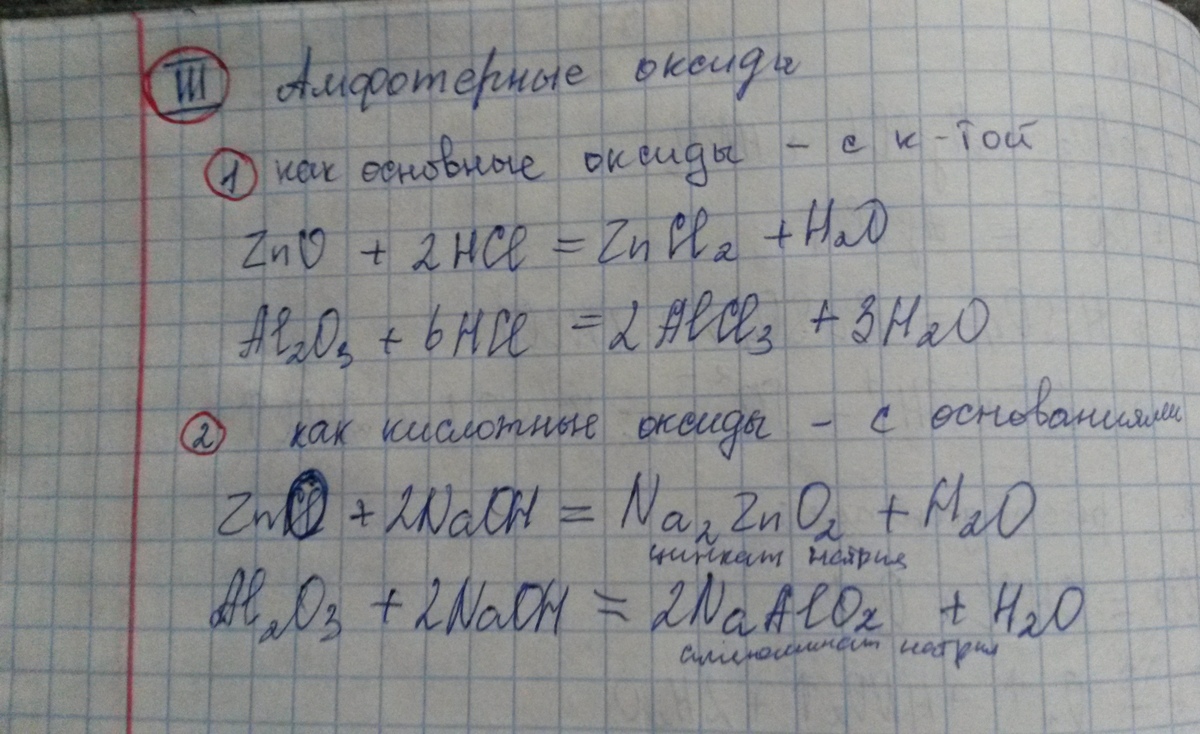 III Амфотерные оксиды
1 как основные оксиды - с к-той
ZnO + 2HCl = ZnCl₂ + H₂O
Al₂O₃ + 6HCl = 2AlCl₃ + 3H₂O
2 как кислотные оксиды - с основаниями
ZnO + 2NaOH = Na₂ZnO₂ + H₂O
цинкат натрия
Al₂O₃ + 2NaOH = 2NaAlO₂ + H₂O
алюминат натрия